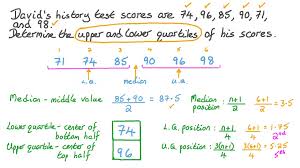 David's history test scores are 74, 96, 85, 90, 71,
and 98.
Determine the upper and lower quartiles of his scores.
1 2 3 4 5 6
71 74 85 90 96 98
L.Q. Median U.Q.
Median - middle value 85+90 / 2 = 87.5
Median position : n+1 / 2 6+1 / 2 = 3.5
Lower quartile - center of bottom half 74
L.Q. position : n+1 / 4 6+1 / 4 = 1.75 2nd
Upper quartile - center of top half 96
U.Q. position : 3(n+1) / 4 3(6+1) / 4 = 5.25 5th